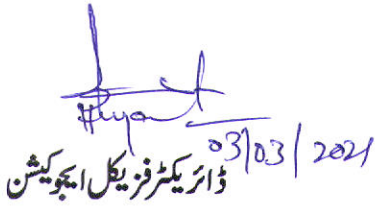 03/03/2021
ڈائریکٹر فزیکل ایجوکیشن